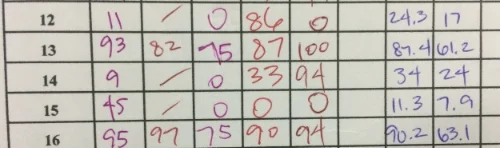 12 11 / 0 86 0 24.3 17
13 93 82 75 87 100 87.4 61.2
14 9 / 0 33 94 34 24
15 45 / 0 0 0 11.3 7.9
16 95 97 75 90 94 90.2 63.1